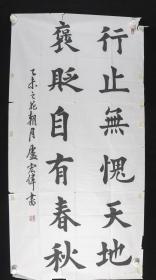 行止無愧天地
褒貶自有春秋
乙未之花朝月盧宏偉書